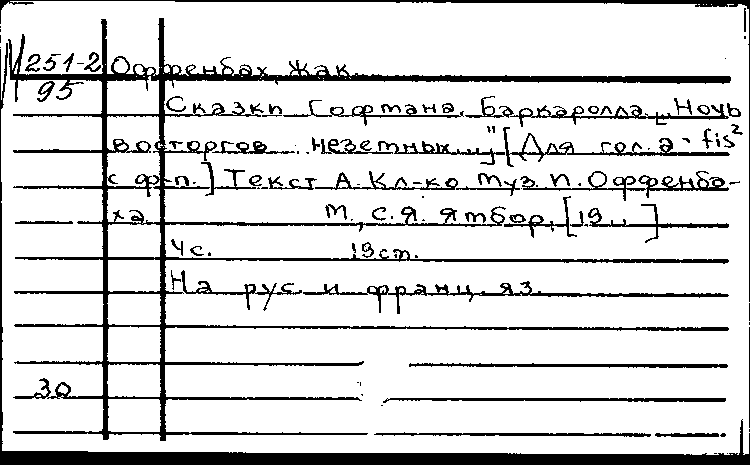 М 251-2 Оффенбах, Жак.
95
Сказки Гофмана. Баркаролла „Ночь
восторгов неземных..." [Для гол. a - fis²
с ф-п.] Текст А. Кл-ко. Муз. П. Оффенба-
ха. М., С.Я. Ямбор, [19..]
4 с. 19 ст.
На рус. и франц. яз.
30